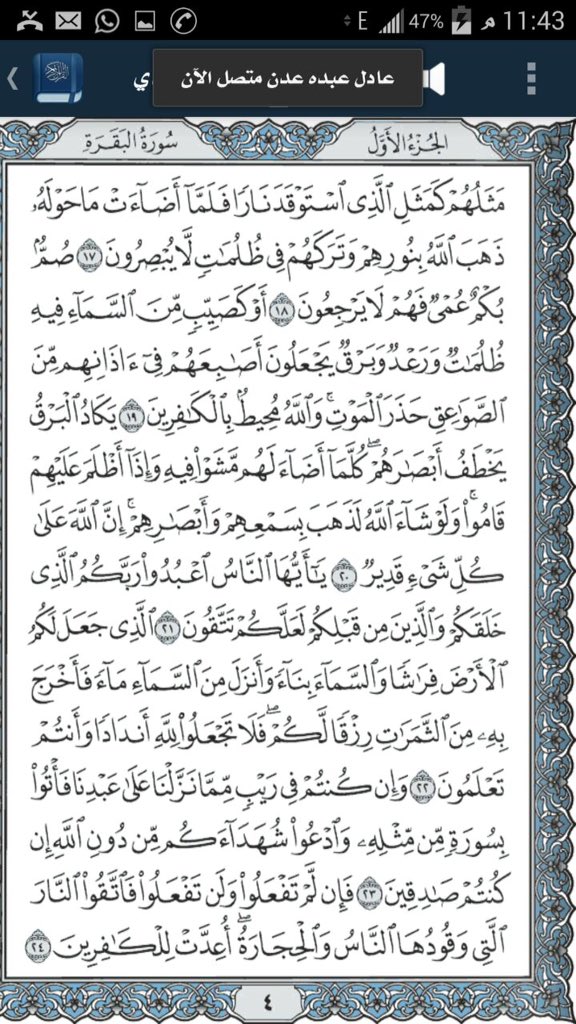 E 47% م 11:43
عادل عبده عدن متصل الآن
ري
الجزء الأول
سورة البقرة
مَثَلُهُمْ كَمَثَلِ ٱلَّذِى ٱسْتَوْقَدَ نَارًا فَلَمَّآ أَضَآءَتْ مَا حَوْلَهُۥ
ذَهَبَ ٱللَّهُ بِنُورِهِمْ وَتَرَكَهُمْ فِى ظُلُمَٰتٍ لَّا يُبْصِرُونَ ١٧ صُمٌّۢ
بُكْمٌ عُمْىٌ فَهُمْ لَا يَرْجِعُونَ ١٨ أَوْ كَصَيِّبٍ مِّنَ ٱلسَّمَآءِ فِيهِ
ظُلُمَٰتٌ وَرَعْدٌ وَبَرْقٌ يَجْعَلُونَ أَصَٰبِعَهُمْ فِىٓ ءَاذَانِهِم مِّنَ
ٱلصَّوَٰعِقِ حَذَرَ ٱلْمَوْتِ ۚ وَٱللَّهُ مُحِيطٌۢ بِٱلْكَٰفِرِينَ ١٩ يَكَادُ ٱلْبَرْقُ
يَخْطَفُ أَبْصَٰرَهُمْ ۖ كُلَّمَآ أَضَآءَ لَهُم مَّشَوْا۟ فِيهِ وَإِذَآ أَظْلَمَ عَلَيْهِمْ
قَامُوا۟ ۚ وَلَوْ شَآءَ ٱللَّهُ لَذَهَبَ بِسَمْعِهِمْ وَأَبْصَٰرِهِمْ ۚ إِنَّ ٱللَّهَ عَلَىٰ
كُلِّ شَىْءٍ قَدِيرٌ ٢٠ يَٰٓأَيُّهَا ٱلنَّاسُ ٱعْبُدُوا۟ رَبَّكُمُ ٱلَّذِى
خَلَقَكُمْ وَٱلَّذِينَ مِن قَبْلِكُمْ لَعَلَّكُمْ تَتَّقُونَ ٢١ ٱلَّذِى جَعَلَ لَكُمُ
ٱلْأَرْضَ فِرَٰشًا وَٱلسَّمَآءَ بِنَآءً وَأَنزَلَ مِنَ ٱلسَّمَآءِ مَآءً فَأَخْرَجَ
بِهِۦ مِنَ ٱلثَّمَرَٰتِ رِزْقًا لَّكُمْ ۖ فَلَا تَجْعَلُوا۟ لِلَّهِ أَندَادًا وَأَنتُمْ
تَعْلَمُونَ ٢٢ وَإِن كُنتُمْ فِى رَيْبٍ مِّمَّا نَزَّلْنَا عَلَىٰ عَبْدِنَا فَأْتُوا۟
بِسُورَةٍ مِّن مِّثْلِهِۦ وَٱدْعُوا۟ شُهَدَآءَكُم مِّن دُونِ ٱللَّهِ إِن
كُنتُمْ صَٰدِقِينَ ٢٣ فَإِن لَّمْ تَفْعَلُوا۟ وَلَن تَفْعَلُوا۟ فَٱتَّقُوا۟ ٱلنَّارَ
ٱلَّتِى وَقُودُهَا ٱلنَّاسُ وَٱلْحِجَارَةُ ۖ أُعِدَّتْ لِلْكَٰفِرِينَ ٢٤
٤